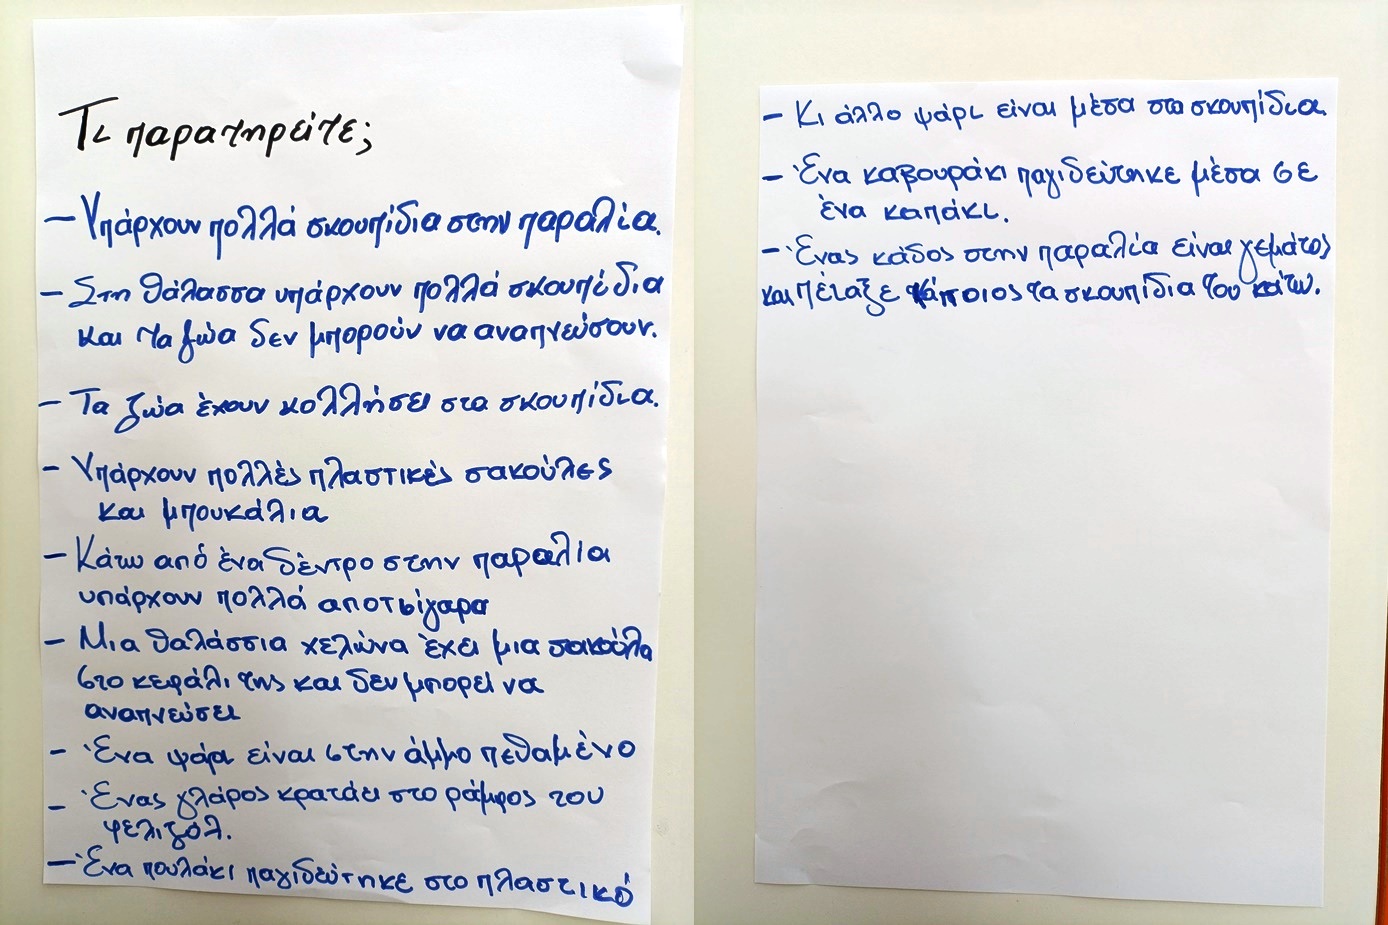 Τι παρατηρείτε;
- Υπάρχουν πολλά σκουπίδια στην παραλία.
- Στη θάλασσα υπάρχουν πολλά σκουπίδια
και τα ζώα δεν μπορούν να αναπνεύσουν.
- Τα ζώα έχουν κολλήσει στα σκουπίδια.
- Υπάρχουν πολλές πλαστικές σακούλες
και μπουκάλια
- Κάτω από ένα δέντρο στην παραλία
υπάρχουν πολλά αποτσίγαρα
- Μια θαλάσσια χελώνα έχει μια σακούλα
στο κεφάλι της και δεν μπορεί να
αναπνεύσει
- Ένα ψάρι είναι στην άμμο πεθαμένο
- Ένας γλάρος κρατάει στο ράμφος του
φελιζόλ.
- Ένα πουλάκι παγιδεύτηκε στο πλαστικό
- Κι άλλο ψάρι είναι μέσα στα σκουπίδια.
- Ένα καβουράκι παγιδεύτηκε μέσα σε
ένα καπάκι.
- Ένας κάδος στην παραλία είναι γεμάτος
και πέταξε κάποιος τα σκουπίδια του κάτω.